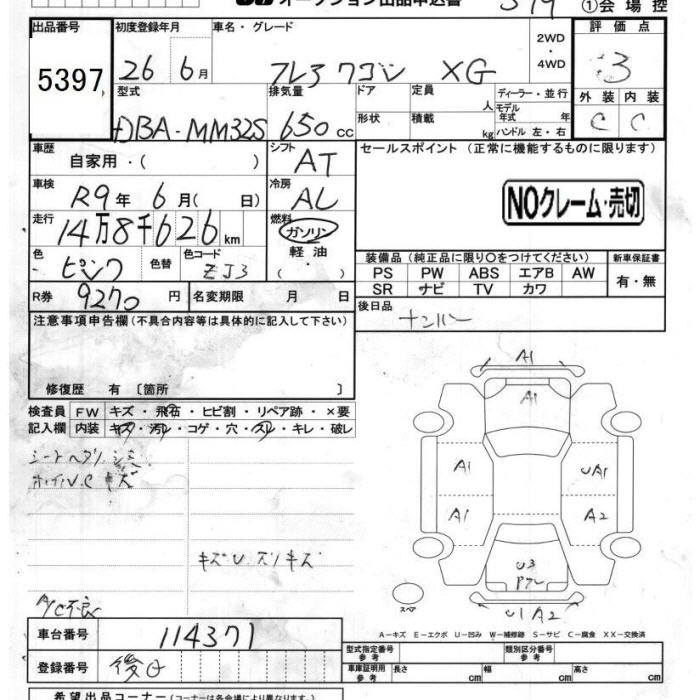 オークション出品申込書
①会場控
出品番号
5397
初度登録年月
26 6月
車名・グレード
フレアワゴン XG
2WD
・
4WD
評価点
3
外装 内装
C C
型式
DBA-MM32S
排気量
650 cc
ドア
形状
定員
人
積載
kg
ディーラー・並行
モデル年式
年
ハンドル 左・右
車歴
自家用・( )
シフト
AT
セールスポイント (正常に機能するものに限ります)
NOクレーム・売切
車検
R9年 6月( 日)
冷房
AC
走行
14万8千626km
燃料
ガソリン
軽油
・
( )
色
ピンク
色替
色コード
ZJ3
装備品(純正品に限り〇をつけてください)
新車保証書
PS PW ABS エアB AW
SR ナビ TV カワ
有・無
R券
9270円
名変期限 月 日
後日品
ナンバー
注意事項申告欄(不具合内容等は具体的に記入して下さい)
修復歴 有〔箇所 〕
検査員記入欄
FW キズ・飛石・ヒビ割・リペア跡・×要
内装 キズ・汚レ・コゲ・穴・スレ・キレ・破レ
キズU スリキズ
A/C不良
A1
A1
A1
UA1
A1
A2
U3
U1 A2
スペア
A-キズ E-エクボ U-凹み W-補修跡 S-サビ C-腐食 XX-交換済
車台番号
114371
登録番号
後日
型式指定番号
参考
類別区分番号
参考
車庫証明用
参考
長さ cm
幅 cm
高さ cm
希望出品コーナー(コーナーは各会場により異なります)